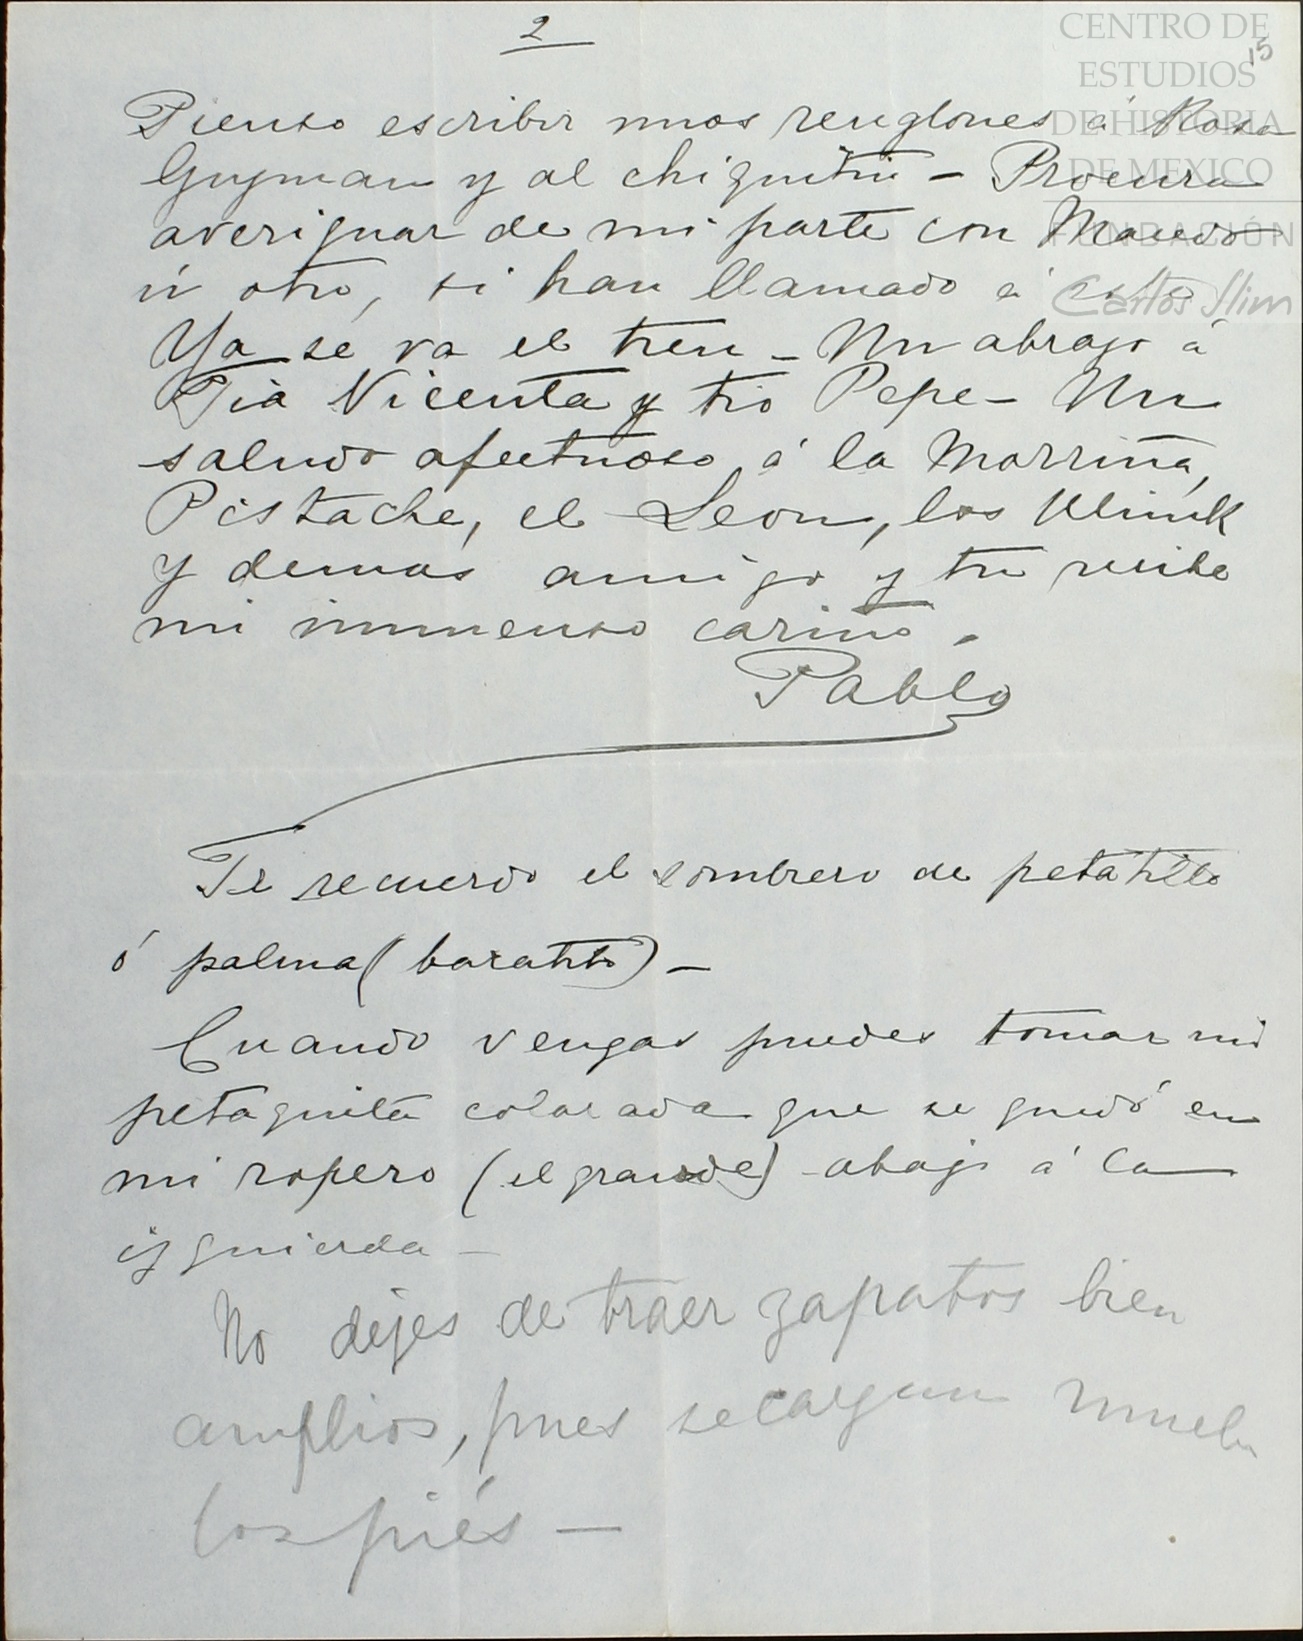 2
15
CENTRO DE
ESTUDIOS
DE HISTORIA
DE MEXICO
FUNDACIÓN
Carlos Slim
Pienso escribir unos renglones á Rosa
Guzman y al chiquitin - Procura
averiguar de mi parte con Macedo
ú otro, si han llamado á
Ya se va el tren - Un abrazo á
Tia Vicenta y tio Pepe - Un
saludo afectuoso á la Morriña,
Pistache, el Leon, los
y demás amigo y tu recibe
mi inmenso cariño.
Pablo
Te recuerdo el sombrero de petatillo
ó palma (baratito) -
Cuando vengas puedes tomar mi
petaquita colorada que se quedó en
mi ropero (el grande) abajo á la
izquierda -
No dejes de traer zapatos bien
amplios, pues se cargan mucho
los piés -